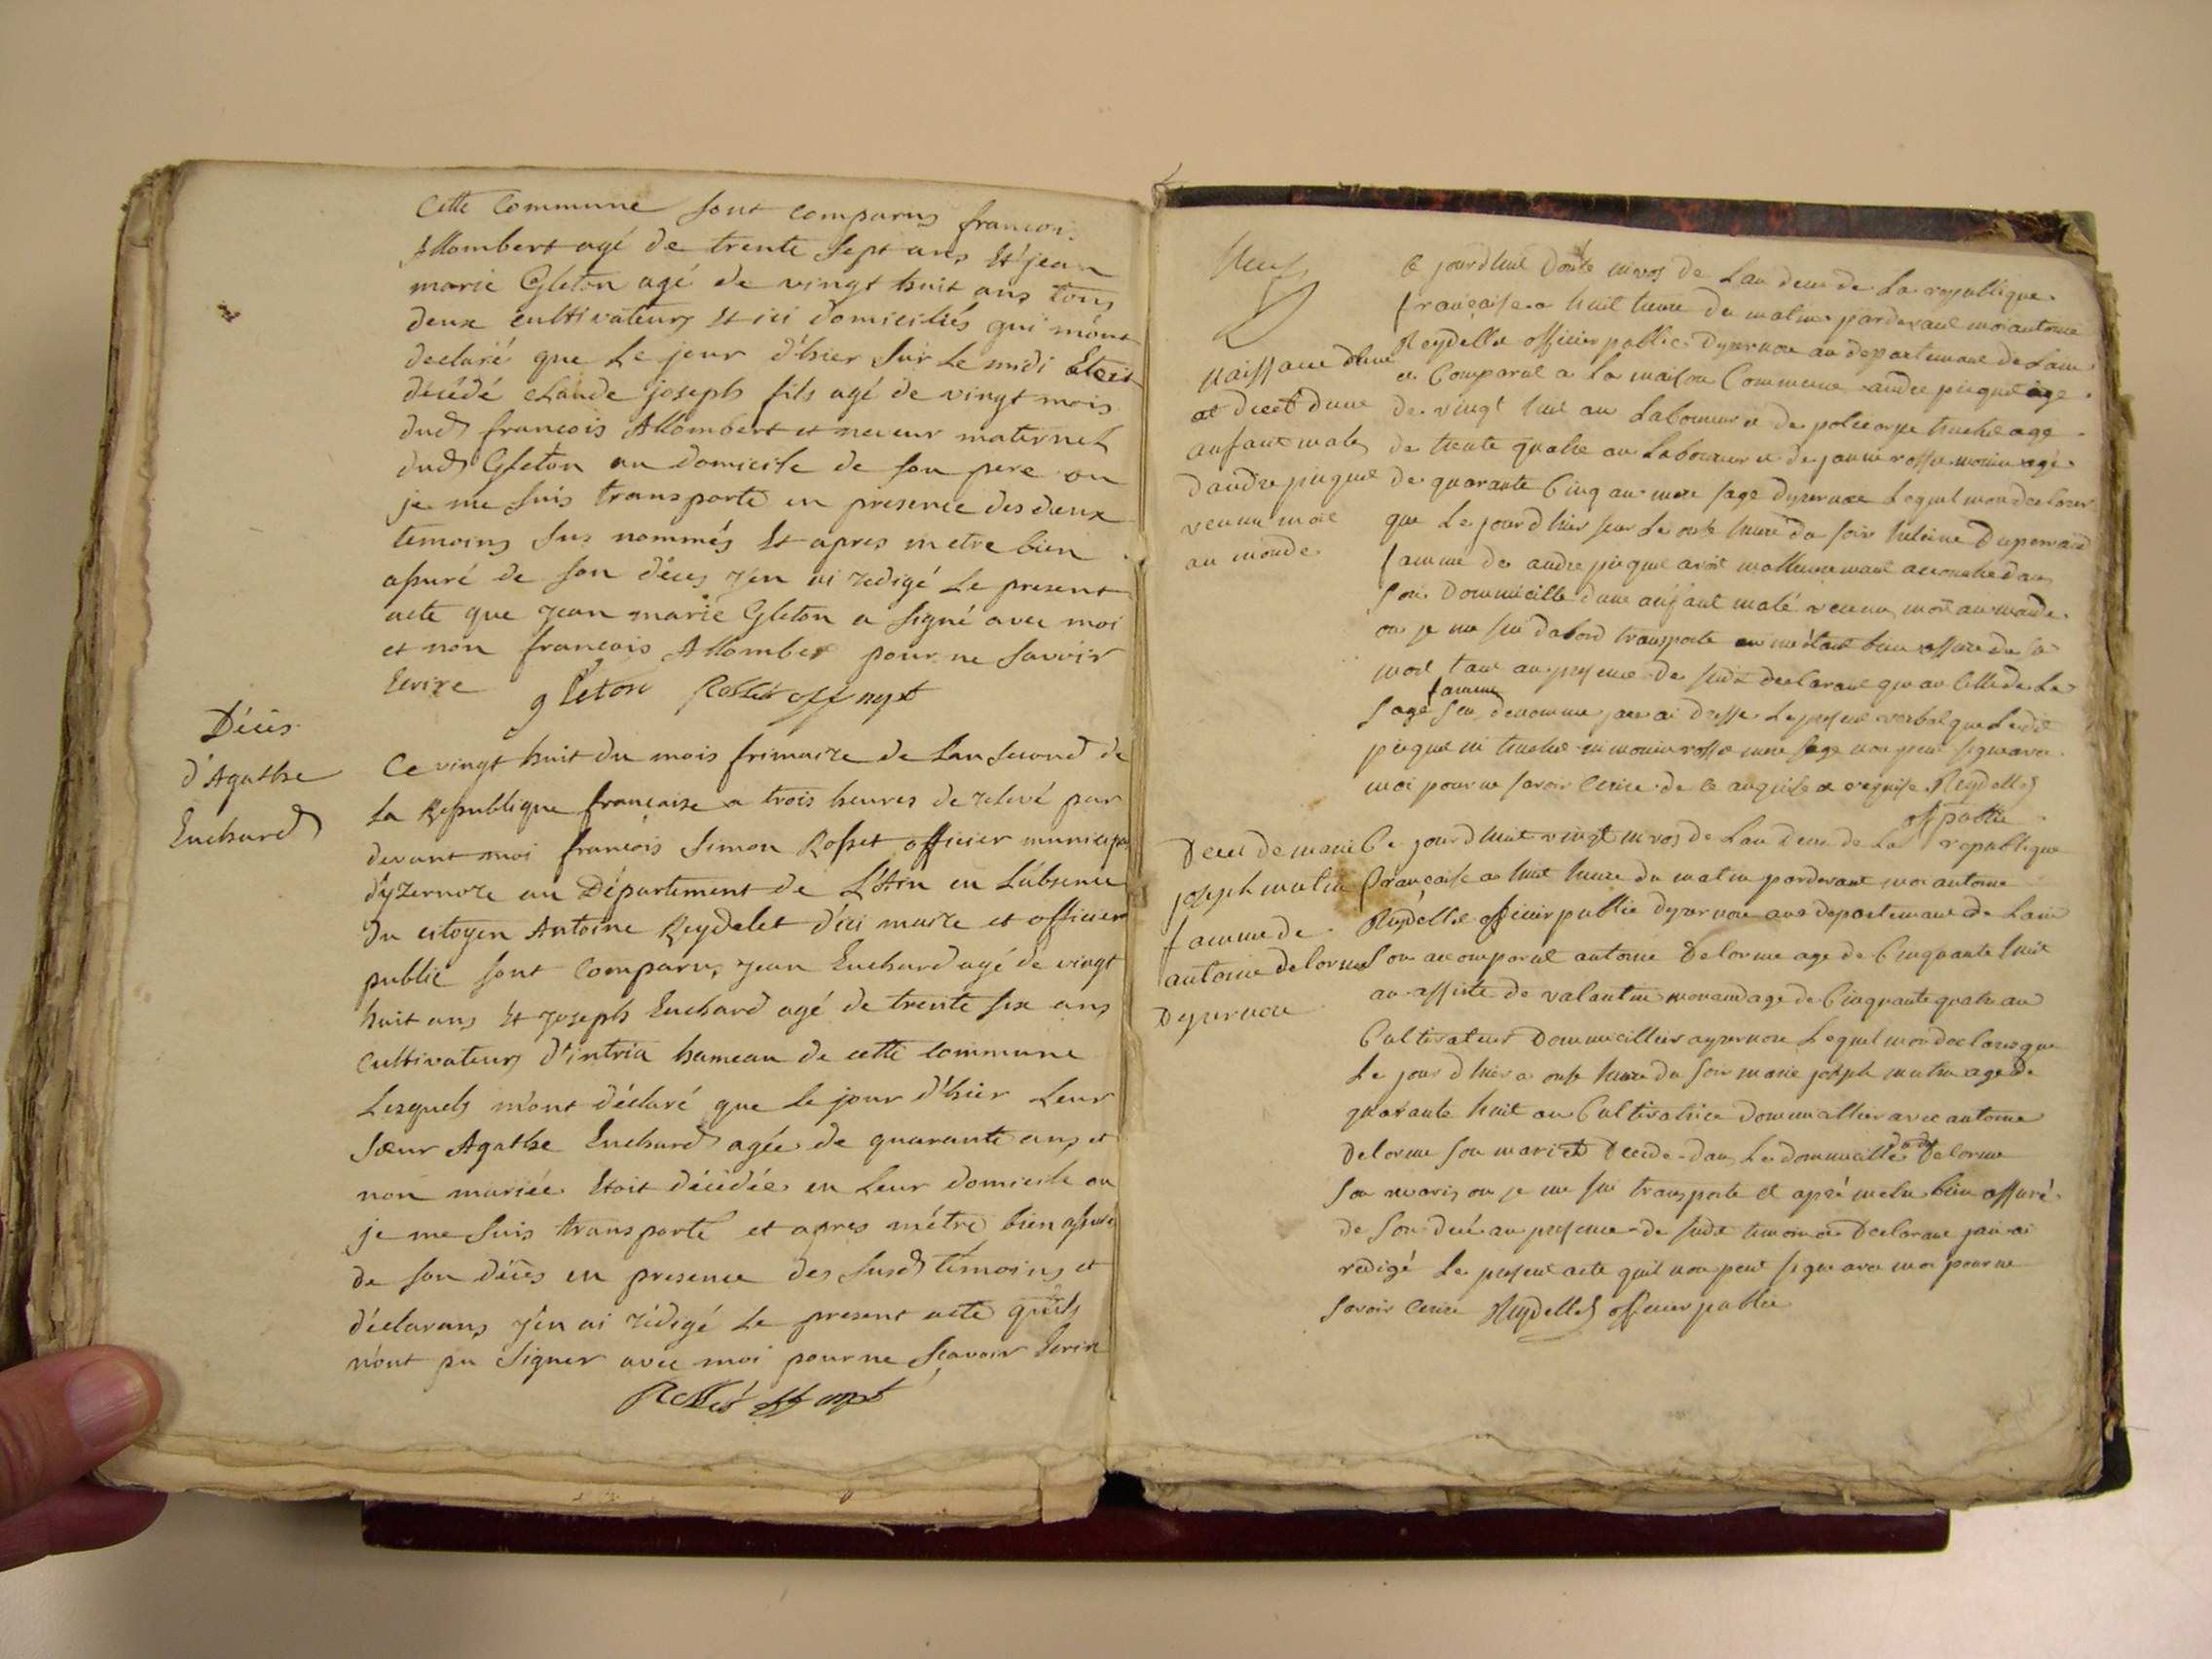 Cette Commune sont comparus francois
Allombert agé de trente sept ans Et jean
marie Gleton agé de vingt huit ans tous
deux cultivateurs Et ici domiciliés qui m'ont
declaré que Le jour d'hier sur Le midi Etoit
décédé claude joseph fils agé de vingt mois
dud francois Allombert et neveur maternel
dud Gleton au domicile de son pere ou
je me suis transporté en presence des deux
temoins sus nommés Et apres m'etre bien
assuré de son déces j'en ai redigé Le present
acte que jean marie Gleton a signé avec moi
et non francois Allomber pour ne savoir
Ecrire gleton Rosset off mpl
Décès
d'Agathe
Euchard
Ce vingt huit du mois frimaire de Lan second de
La Republique française a trois heures de relevé par
devant moi françois Simon Rosset officier municipal
d'yzernore au Département de L'Ain en L'absence
Du citoyen Antoine Reydelet d'ici maire et officier
public sont Comparu, jean Euchard agé de vingt
huit ans Et joseph Euchard agé de trente six ans
Cultivateurs d'intria hameau de cette commune
Lesquels m'ont déclaré que le jour d'hier Leur
sœur Agathe Euchard agée de quarante ans et
non mariée Etoit décédée en Leur domicile ou
je me suis transporté et apres m'être bien assuré
de son décès en presence des susd témoins et
déclarans j'en ai rédigé Le present acte qu'ils
n'ont pu signer avec moi pour ne sçavoir Ecrire
Rosset off mpl
naissance dune
et decet dune
anfant male
dandre picquet
venu mort
au monde
Ce jourdhui douse nivos de Lan deux de La republique
française a huit heure du matin pardevant moi antoine
Reydellet officier public Dysernore au departemant de Lain
a Comparut a La maison Commune andre picquet age
de vingt huit an Laboureur et de policarpe age
de trente quatre an Laboureur et de janne rosse monin agé
de quarante Cinq an mere sage dysernore Lequel mon declarer
que Le jourdhier sur Le onse heure du soir heleine
famme de andre picquet avoit malleureusemant acouchée dan
son Dommicille dune anfant malé venu mort au monde
ou je me sui dabord transporte em métant bien assure de sa
mort tant an presence de sudit declarant que an Celle de La
sage famme denomme jan ai dresse Le present verbal que Ledit
picquet ni ni monin rosse mere sage non peut signe avec
moi pour ne savoir Cerire de Ce anquise et requise Reydellet
of public
Decet de marie
joseph mutin
famme de
antoine delorme
Dysernore
Ce jourdhuit vingt nivos de Lan deux de La republique
française a huit heure du matin pardevant moi antoine
Reydellet officier public dysernore au departemant de Lain
son acomparut antoine Delorme age de Cinquante huit
an assiste de valantin morand age de Cinquante quatre an
Cultivateur Dommicillier aysernore Lequel mon declare que
Le jour dhier a onse heure du soir marie joseph mutin age de
quarante huit an Cultivatrice dommicillier avec antoine
Delorme son mari et Decede dans Le dommicille dudit Delorme
son maris ou je me sui transporte et apré metre bien assuré
de son decé an presence de sudit temoin et Declarant jan ai
redigé Le present acte quil non peut signe avec moi pour ne
savoir Cerire Reydellet officier public